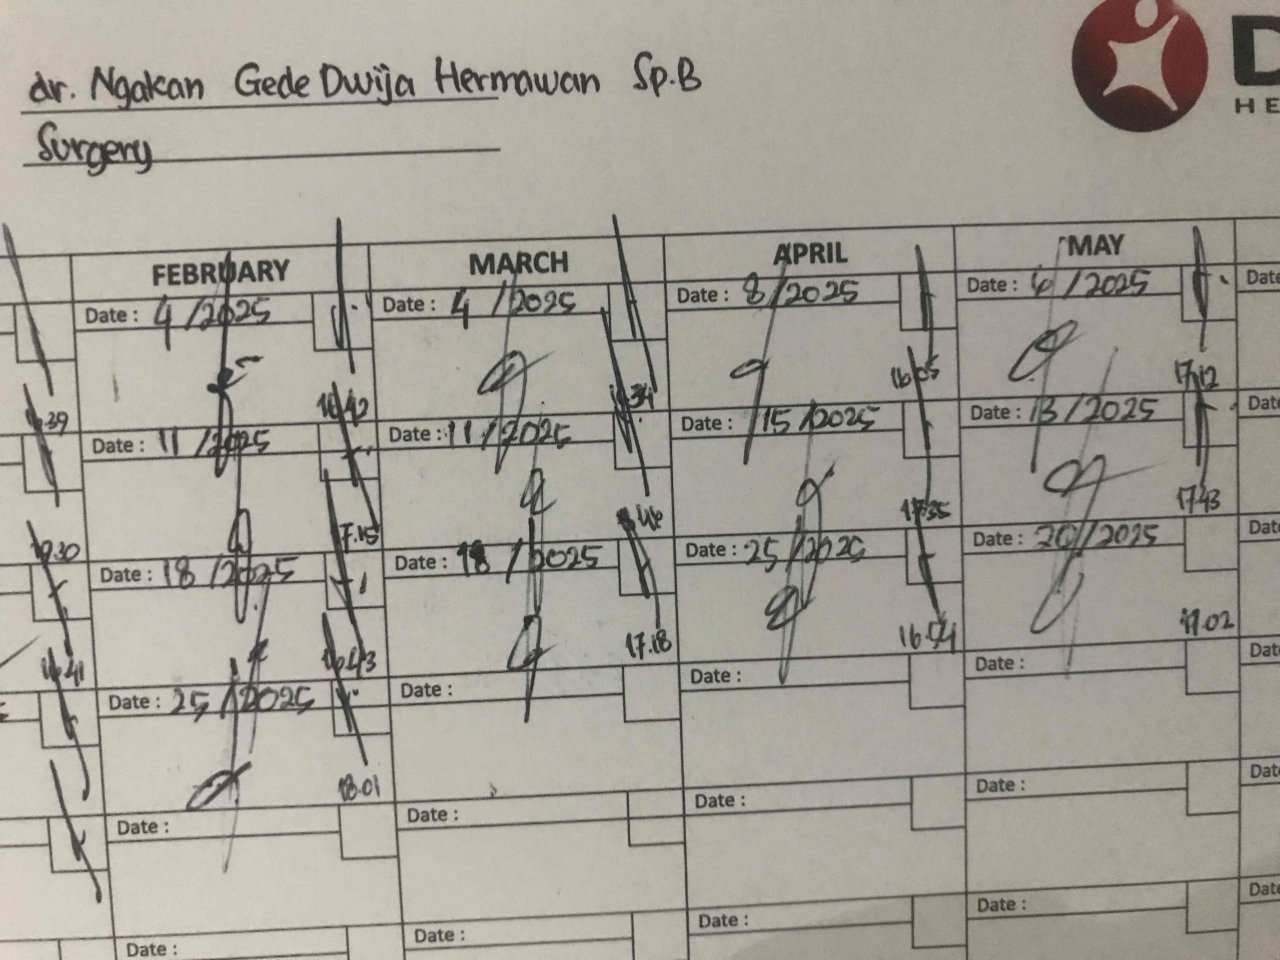 dr. Ngakan Gede Dwija Hermawan Sp.B
Surgery
D
HE
FEBRUARY MARCH APRIL MAY
Date: 4/2025 Date: 4/2025 Date: 8/2025 Date: 6/2025 Date
16.42 16.05 17.12
Date: 11/2025 Date: 11/2025 Date: 15/2025 Date: 13/2025 Date
17.15 17.43
Date: 18/2025 Date: 18/2025 Date: 25/2025 Date: 20/2025 Date
16.41 16.43 17.18 16.54 17.02
Date: 25/2025 Date: Date: Date: Date
18.01
Date: Date: Date: Date: Date
Date: Date: Date: Date: Date